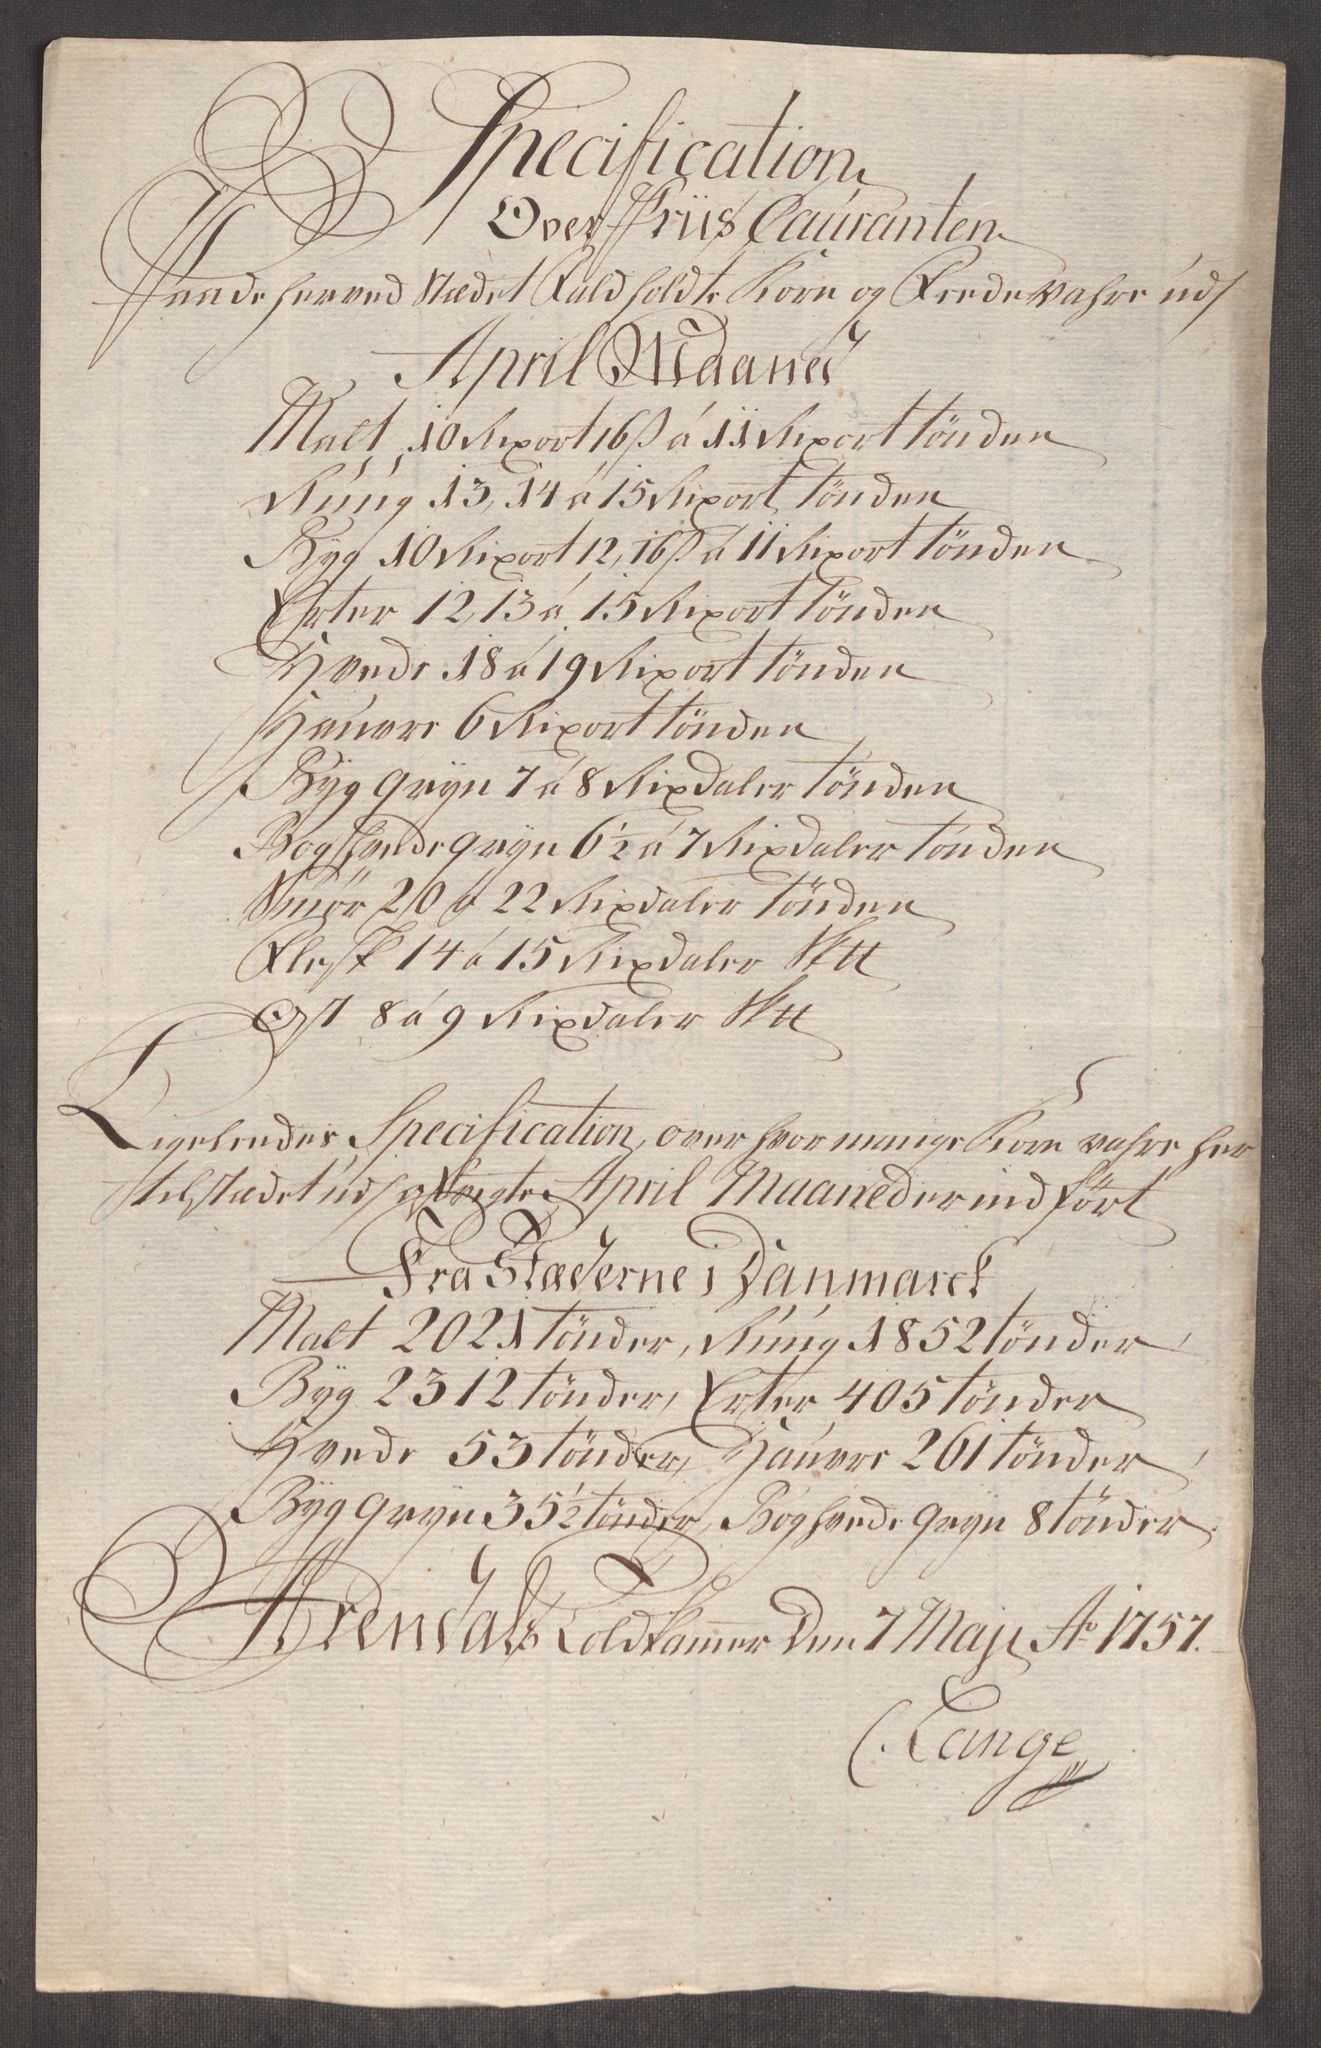 Specification
Over Priis Cauranten
Paa de herved Stædet fald holdte Korn og Fede Vahre udj
April Maaned
Malt, 10 Rixort 16 s á 11 Rixort tönden
Rúúg 13, 14 á 15 Rixort tönden
Byg 10 Rixort 12, 16 s á 11 Rixort tönden
Erter 12, 13 á 15 Rixort tönden
Hvede 18 á 19 Rixort tönden
Haúvre 6 Rixort tönden
Byg gryn 7 á 8 Rixdaler tönden
Boghvede gryn 6½ á 7 Rixdaler tönden
Smör 20 á 22 Rixdaler tönden
Flesk 14 á 15 Rixdaler Sktt
Ost 8 á 9 Rixdaler Sktt
Ligeleedes Specification, over hvor mange Korn vahre her
til stædet udj April Maaned er ind fört
Fra Stæderne i Danmarck
Malt 2021 tönder, Rúúg 1852 tönder
Byg 2312 tönder, Erter 405 tönder
Hvede 53 tönder, Haúvre 261 tönder
Byg gryn 35½ tönder, Boghvede gryn 8 tönder
Arendals Toldkammer Den 7 Maji Ao 1757.
C. Lange